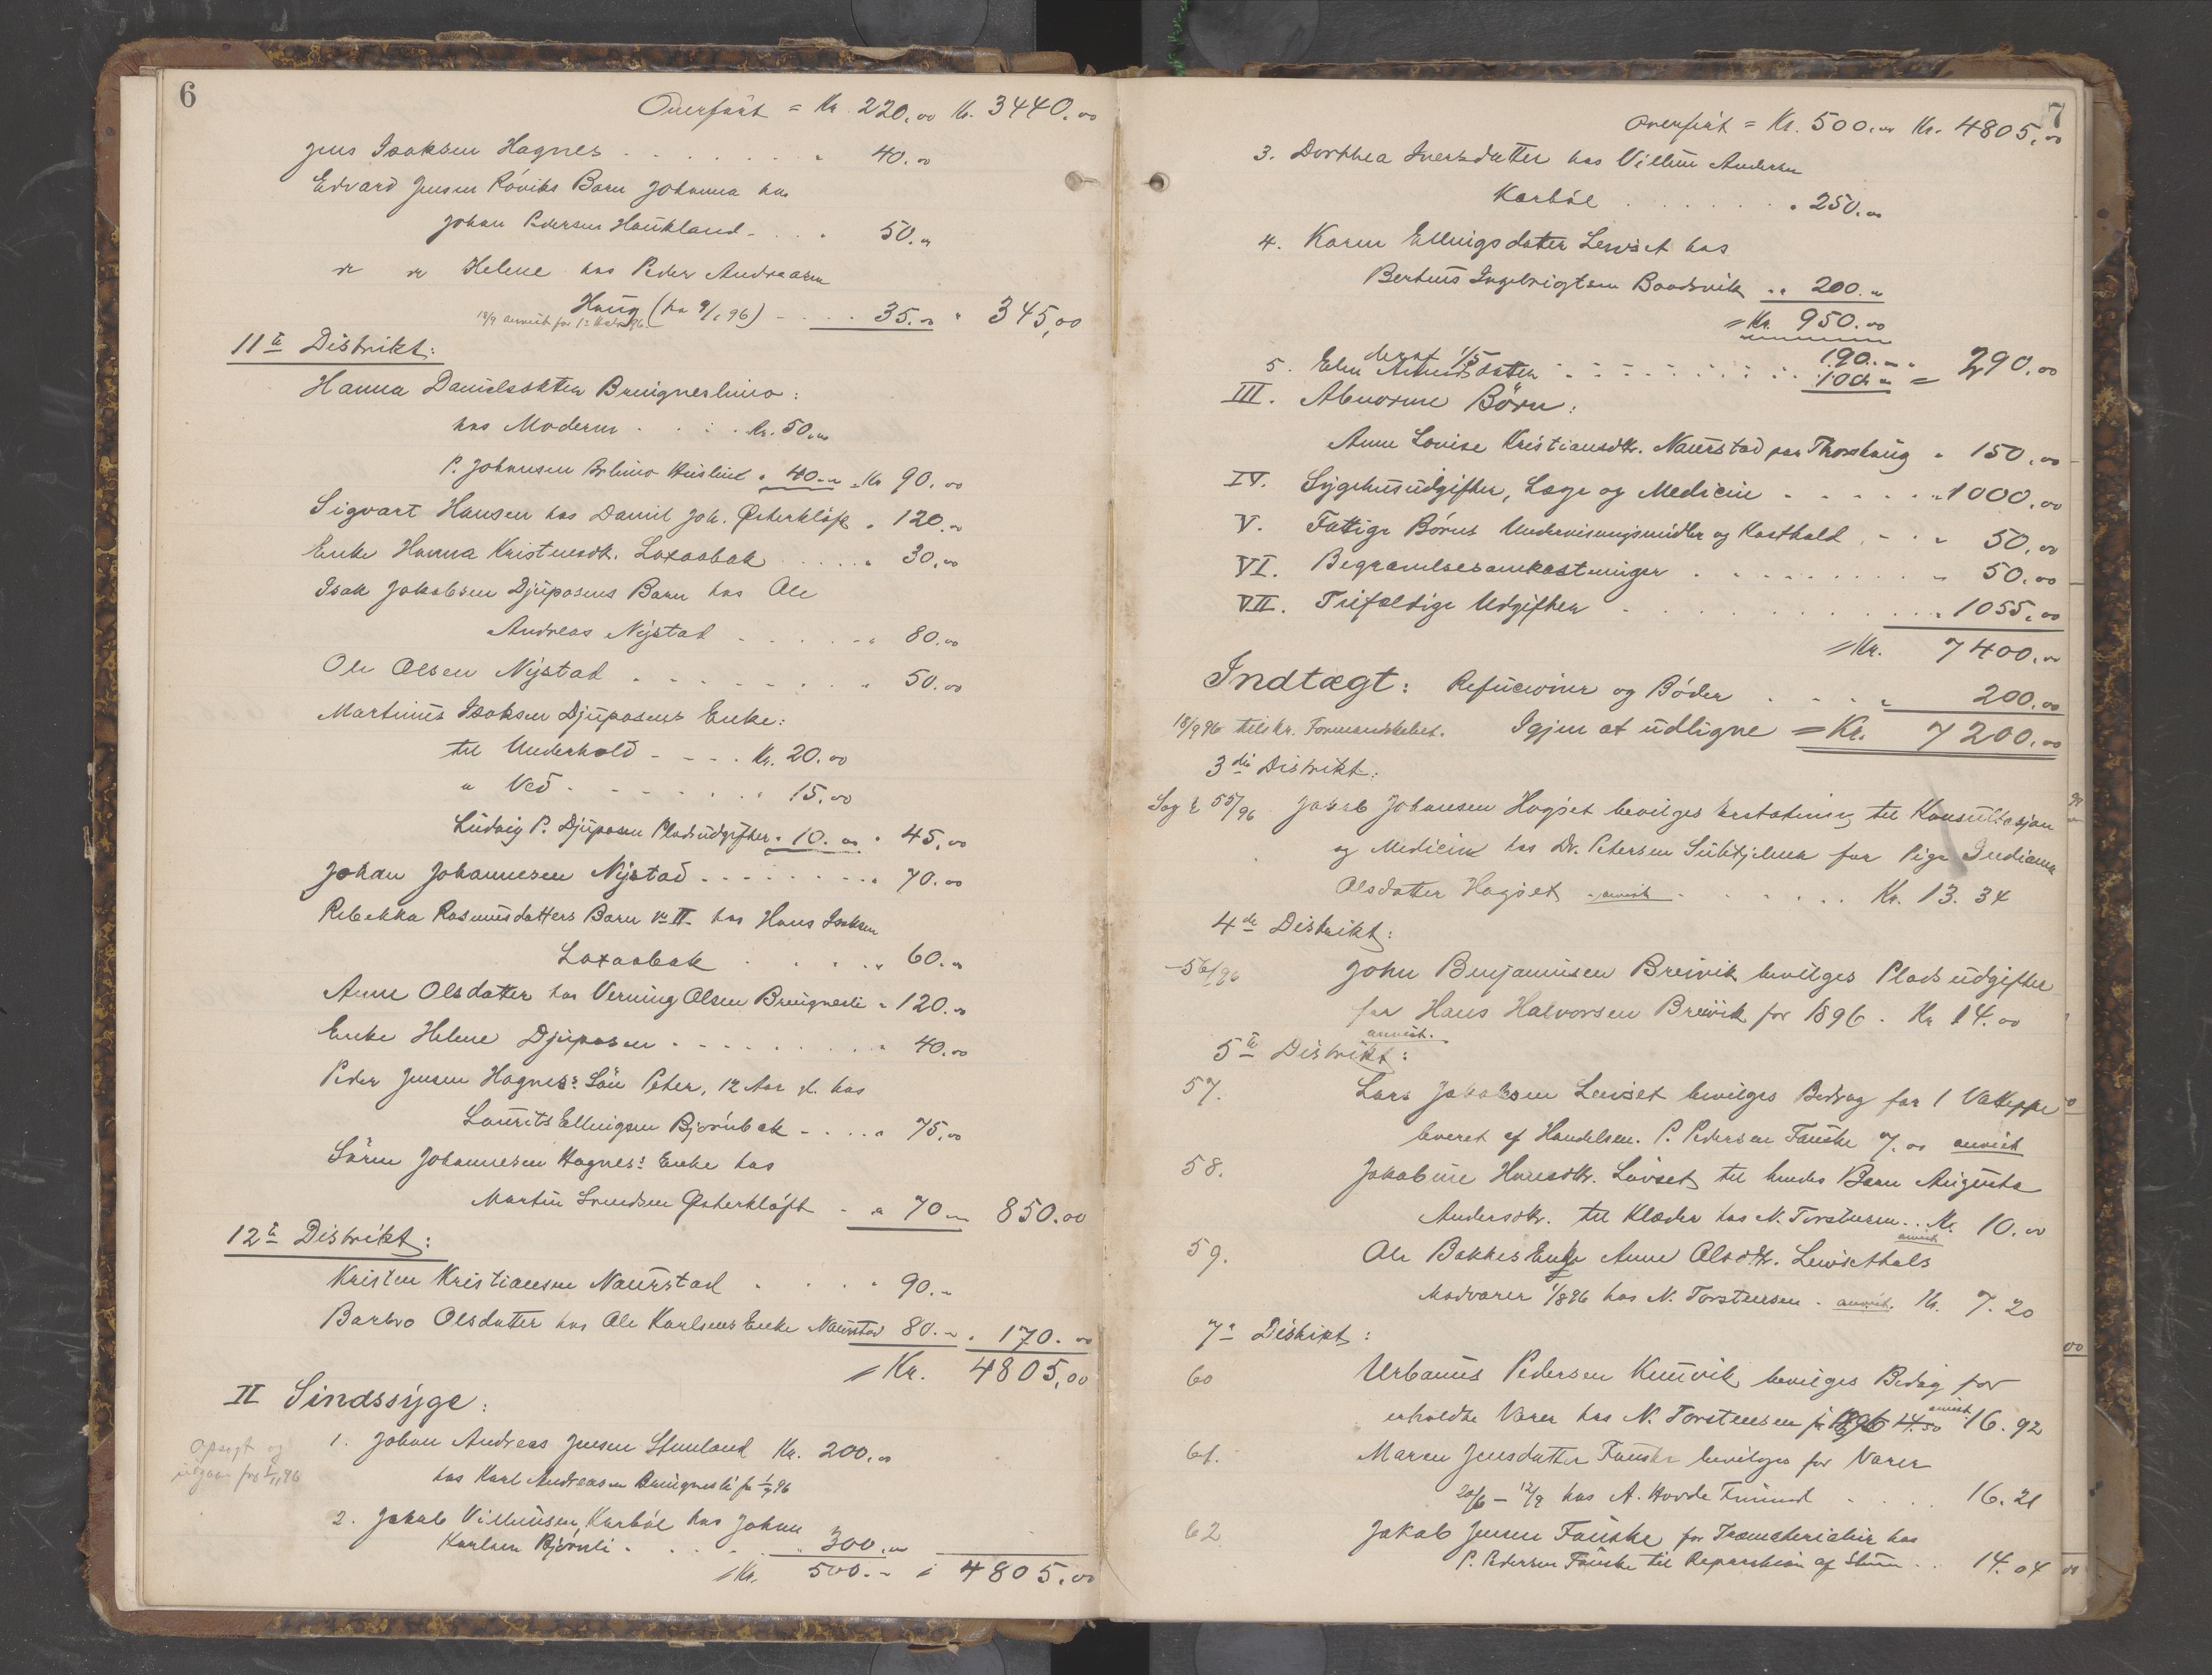 6
Overført = Kr. 220.00 Kr. 3440.00
Jens Isaksen Hagnes . . . . . " 40.00
Edvard Jensen Røviks Barn Johanna hos
Johan Pedersen Haukland . . . 50.00
Helene hos Peder Andreasen
Haug (fra 9/1 96) . . . 35.00 " 345,00
18/9 anvist for
11te Distrikt:
Hanna Danielsdatter Breignerlimo:
hos Moderen . . . . Kr. 50.00
P. Johansen " 40.00 = Kr 90.00
Sigvart Hansen hos Daniel Joh. Østerkløft " 120.00
Enke Hanna Kristensdt. Laxaabak . . . . " 30.00
Isak Jakobsen Djupaasens Barn hos Ole
Andreas Nystad . . . . . " 80.00
Ole Olsen Nystad . . . . . . " 50.00
Martinus Isaksen Djupaasens Enke:
til Underhold . . . . Kr. 20.00
" Ved . . . . . . " 15.00
Ludvig P. Djupaasen Pladsudgifter " 10.00 " 45.00
Johan Johannesen Nystad . . . . . . . " 70.00
Rebekka Rasmusdatters Barn No II hos Hans Isaksen
Laxaabak . . . . " 60.00
Anne Olsdatter hos Verning Olsen Breignesli " 120.00
Enke Helene Djupaasen . . . . . . . " 40.00
Peder Jensen Hagnes's Søn Peter, 12 Aar gl. hos
Laurits Ellingsen Bjørnbak . . . . " 75.00
Søren Johannesen Hagnes's Enke hos
Martin Svendsen Østerkløft . " 70.00 850.00
12te Distrikt:
Kristen Kristiansen Naurstad . . . . " 90.00
Barbro Olsdatter hos Ole Karlsens Enke Naurstad 80.00 " 170.00
= Kr. 4805,00
II Sindssyge:
Opsagt og
udgaar fra 1/11 96
1. Johan Andreas Jensen Stemland Kr. 200.00
hos Karl Andreasen Breignesli fr 1/7 96
2. Jakob Villumsen, Karbøl hos Johan
Karlsen Bjørnli . . . . " 300.00
= Kr. 500.00 = 4805.00
7
Overført = Kr. 500.00 Kr. 4805,00
3. Dorthea Iversdatter hos Villum Andersen
Karbøl . . . . . . " 250.00
4. Karen Ellingsdatter Leivset hos
Berteus Ingebrigtsen Baadsvik " 200.00
= Kr. 950.00
deraf 1/5 190.00
5. Elen . . . . . . . . 100.00 = 290.00
III. Abnorme Børn:
Anne Louise Kristiansdtr. Naurstad paa Thorshaug " 150.00
IV. Sygehusudgifter, Læge og Medicin . . . . . " 1000.00
V. Fattige Børns Undervisningsmidler og Kosthold . . " 50.00
VI. Begravelsesomkostninger . . . . . . . . " 50.00
VII. Tilfældige Udgifter . . . . . . . . . " 1055.00
= Kr. 7400.00
Indtægt: Refusioner og Bøder . . . . " 200.00
18/9 96 tilskr. Formandskabet. Igjen at udligne = Kr. 7200.00
3die Distrikt:
Sag № 55/96 Jakob Johansen Hagset bevilges Erstatning til Konsultasjon
og Medicin hos Dr. Petersen Sulitjelma for Pige Indianna
Olsdatter Hagset anvist . . . . . Kr. 13.34
4de Distrikt:
56/96 John Benjaminsen Breivik bevilges Pladsudgifter
for Hans Halvorsen Breivik for 1896. Kr 14.00
anvist.
5te Distrikt:
57. Lars Jakobsen Leivset bevilges Bedrag for 1 Vatteppe
leveret af Handelsm. P. Pedersen Fauske 7.00 anvist
58. Jakobine Hansdtr. Leivset til hendes Barn Augusta
Andersdtr. til Klæder hos N. Torstensen . . Kr. 10.00
anvist
59. Ole Bakkes Enke Anne Olsdtr. Leivsethals
Madvarer 1/8 96 hos N. Torstensen . anvist. Kr. 7.20
7de Distrikt:
60 Urbanus Pedersen Kumvik bevilges Bedrag for
erholdte Varer hos N. Torstensen anvist 16.92
61. Maren Jensdatter Fauske bevilges for Varer
20/6 – 12/9 hos A. Hovde Finneid . . . . 16.21
62 Jakob Jensen Fauske for Træmaterialier hos
P. Pedersen Fauske til Reparation af Stuen . . 14.04